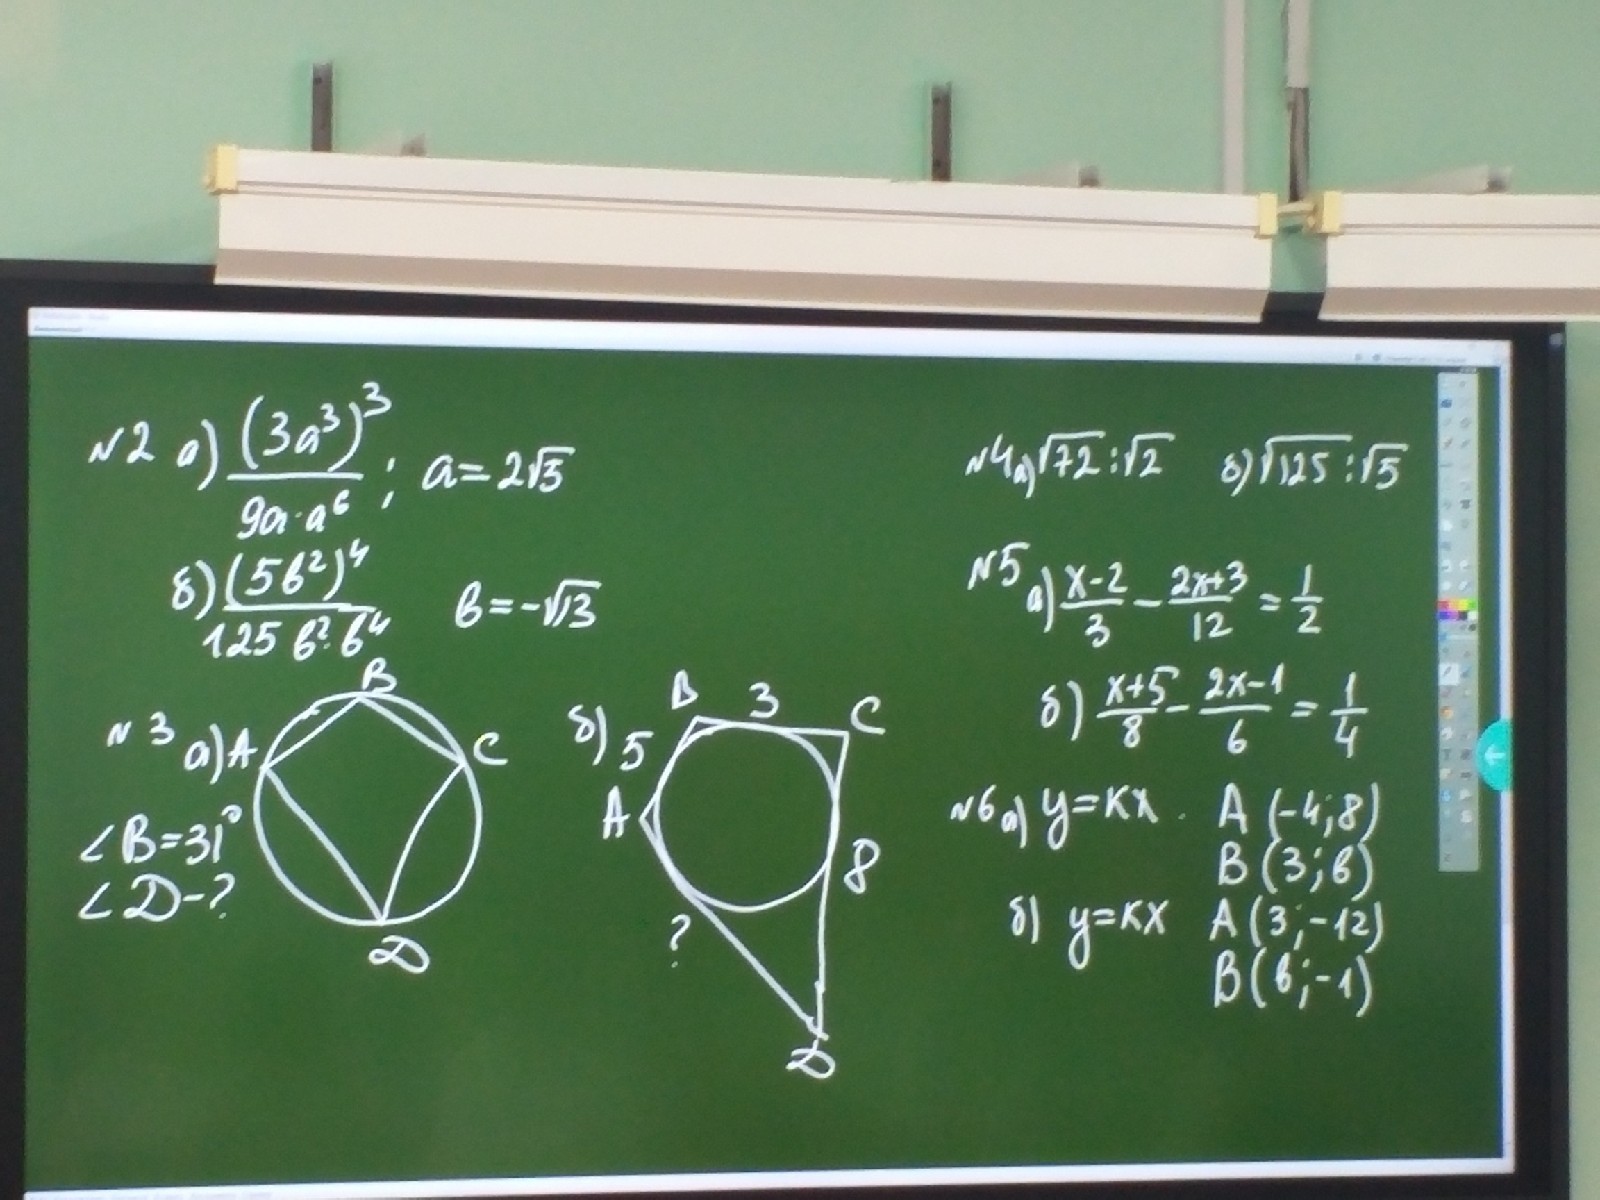 N2 а) (3a³)³ / 9a·a⁶ ; a=2√3
б) (5b²)⁴ / 125 b²·b⁴ b=-√13
N3 а) A B C D
∠B=31°
∠D-?
б) A B C D 5 3 8 ?
N4 а) √72:√2 б) √125:√5
N5 а) x-2/3 - 2x+3/12 = 1/2
б) x+5/8 - 2x-1/6 = 1/4
N6 а) y=kx. A (-4;8)
B (3;b)
б) y=kx A (3;-12)
B (b;-1)